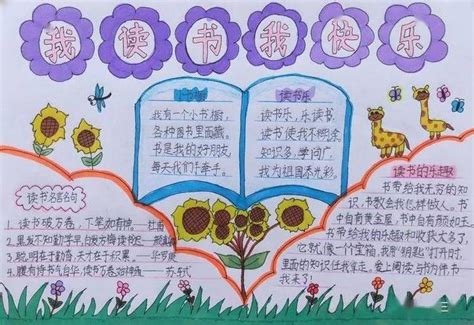 我读书我快乐
我有一个小书橱，
各种图书里面藏。
书是我的好朋友，
每天我们手牵手。
读书乐
读书乐，乐读书，
读书使我不糊涂。
知识多，学问广，
我为祖国添光彩。
读书名言名句
1、读书破万卷，下笔如有神。 杜甫
2、黑发不知勤学早，白发方悔读书迟
3、聪明在于勤奋，天才在于积累。 华罗庚
4、腹有诗书气自华，读书万卷始通神。 苏轼
读书的乐趣
书带给我无穷的知
识，书教会我怎样做人。书
中自有黄金屋，书中自有颜如玉
书带给我的乐趣和收获太多了。
它就像一个宝箱，我用钥匙打开时，
里面的知识任我学走。爱上阅读，与书为伴书
我来了！